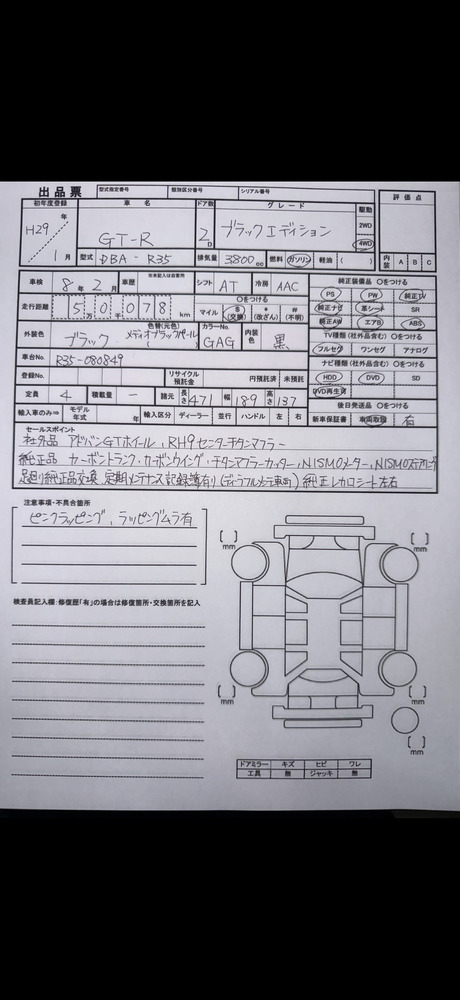 出品票 型式指定番号 類別区分番号 シリアル番号
初年度登録 車名 ドア数 グレード 駆動 評価点
H29年 1月 GT-R 2D ブラックエディション 2WD 4WD
型式 DBA-R35 排気量 3800cc 燃料 ガソリン 軽油 ( ) 内装 A B C
車検 8年2月 車歴 ※未記入は自家用 シフト AT 冷房 AAC 純正装備品 〇をつける
走行距離 50078km 万 千 〇をつける PS PW 純正TV
マイル $(交換) (改ざん) #(不明) 純正ナビ 革シート SR
純正AW エアB ABS
外装色 ブラック 色替(元色) メテオブラックパール カラーNo. GAG 内装色 黒 TV種類(社外品含む) 〇をつける
フルセグ ワンセグ アナログ
車台No. R35-080849 ナビ種類(社外品含む) 〇をつける
登録No. リサイクル預託金 円預託済 未預託 HDD DVD SD
定員 4 積載量 － 諸元 長さ 471 幅 189 高さ 137 DVD再生可
輸入車のみ⇒ モデル年式 年 輸入区分 ディーラー 並行 ハンドル 左 右 後日発送品 〇をつける
新車保証書 車両取説 有
セールスポイント
社外品 アドバンGTホイール、RH9センターチタンマフラー
純正品 カーボントランク・カーボンウイング・チタンマフラーカッター、NISMOメーター、NISMOステアリング
足廻り純正品交換 定期メンテナンス記録簿有り 純正レカロシート左右
注意事項・不具合箇所
ピンクラッピング、ラッピングムラ有
検査員記入欄:修復歴「有」の場合は修復箇所・交換箇所を記入
[ ] mm [ ] mm
[ ] mm [ ] mm
[ ] mm
ドアミラー キズ ヒビ ワレ
工具 無 ジャッキ 無